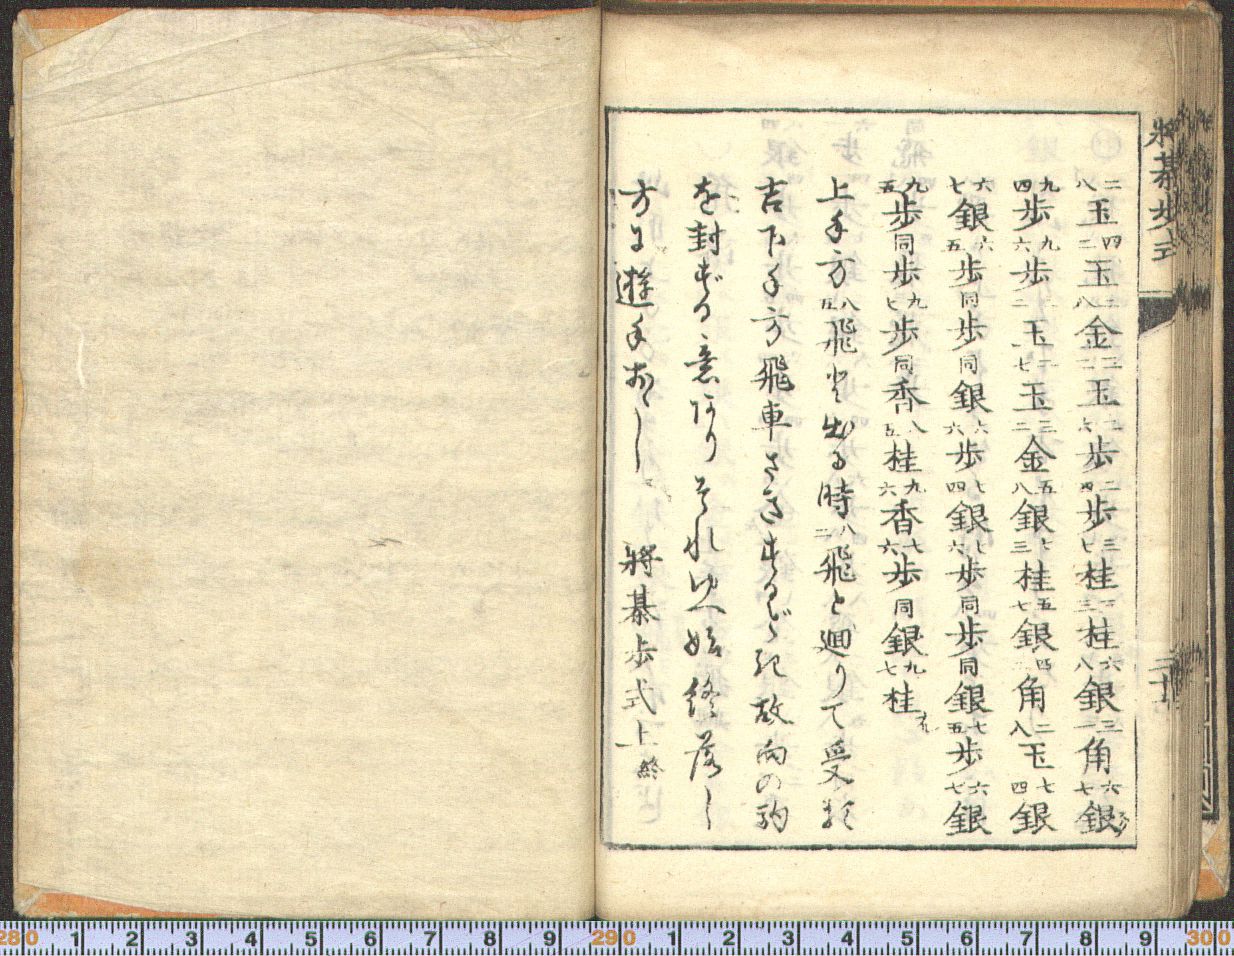 将棊歩式
二八玉 四二玉 三八金 三二玉 二六歩 二四歩 三七桂 一三桂 六八銀 三一角 六七銀
九四歩 九六歩 二二玉 一七玉 三二金 五八銀 七三桂 五七銀 四二角 二八玉 七四銀
六七銀 六五歩 同歩 同銀 六六歩 七四銀 七六歩 同歩 同銀 七五歩 六七銀
九五歩 同歩 九七歩 同香 八五桂 九六香 七六歩 同銀 九七桂
上手方八五飛と出る時八二飛と廻りて受る
吉下手方飛車さき 故向の駒
を封ずる意ありそれゆへ始終落し
方に遊手おゝし 将棊歩式上終
280 1 2 3 4 5 6 7 8 9 290 1 2 3 4 5 6 7 8 9 300